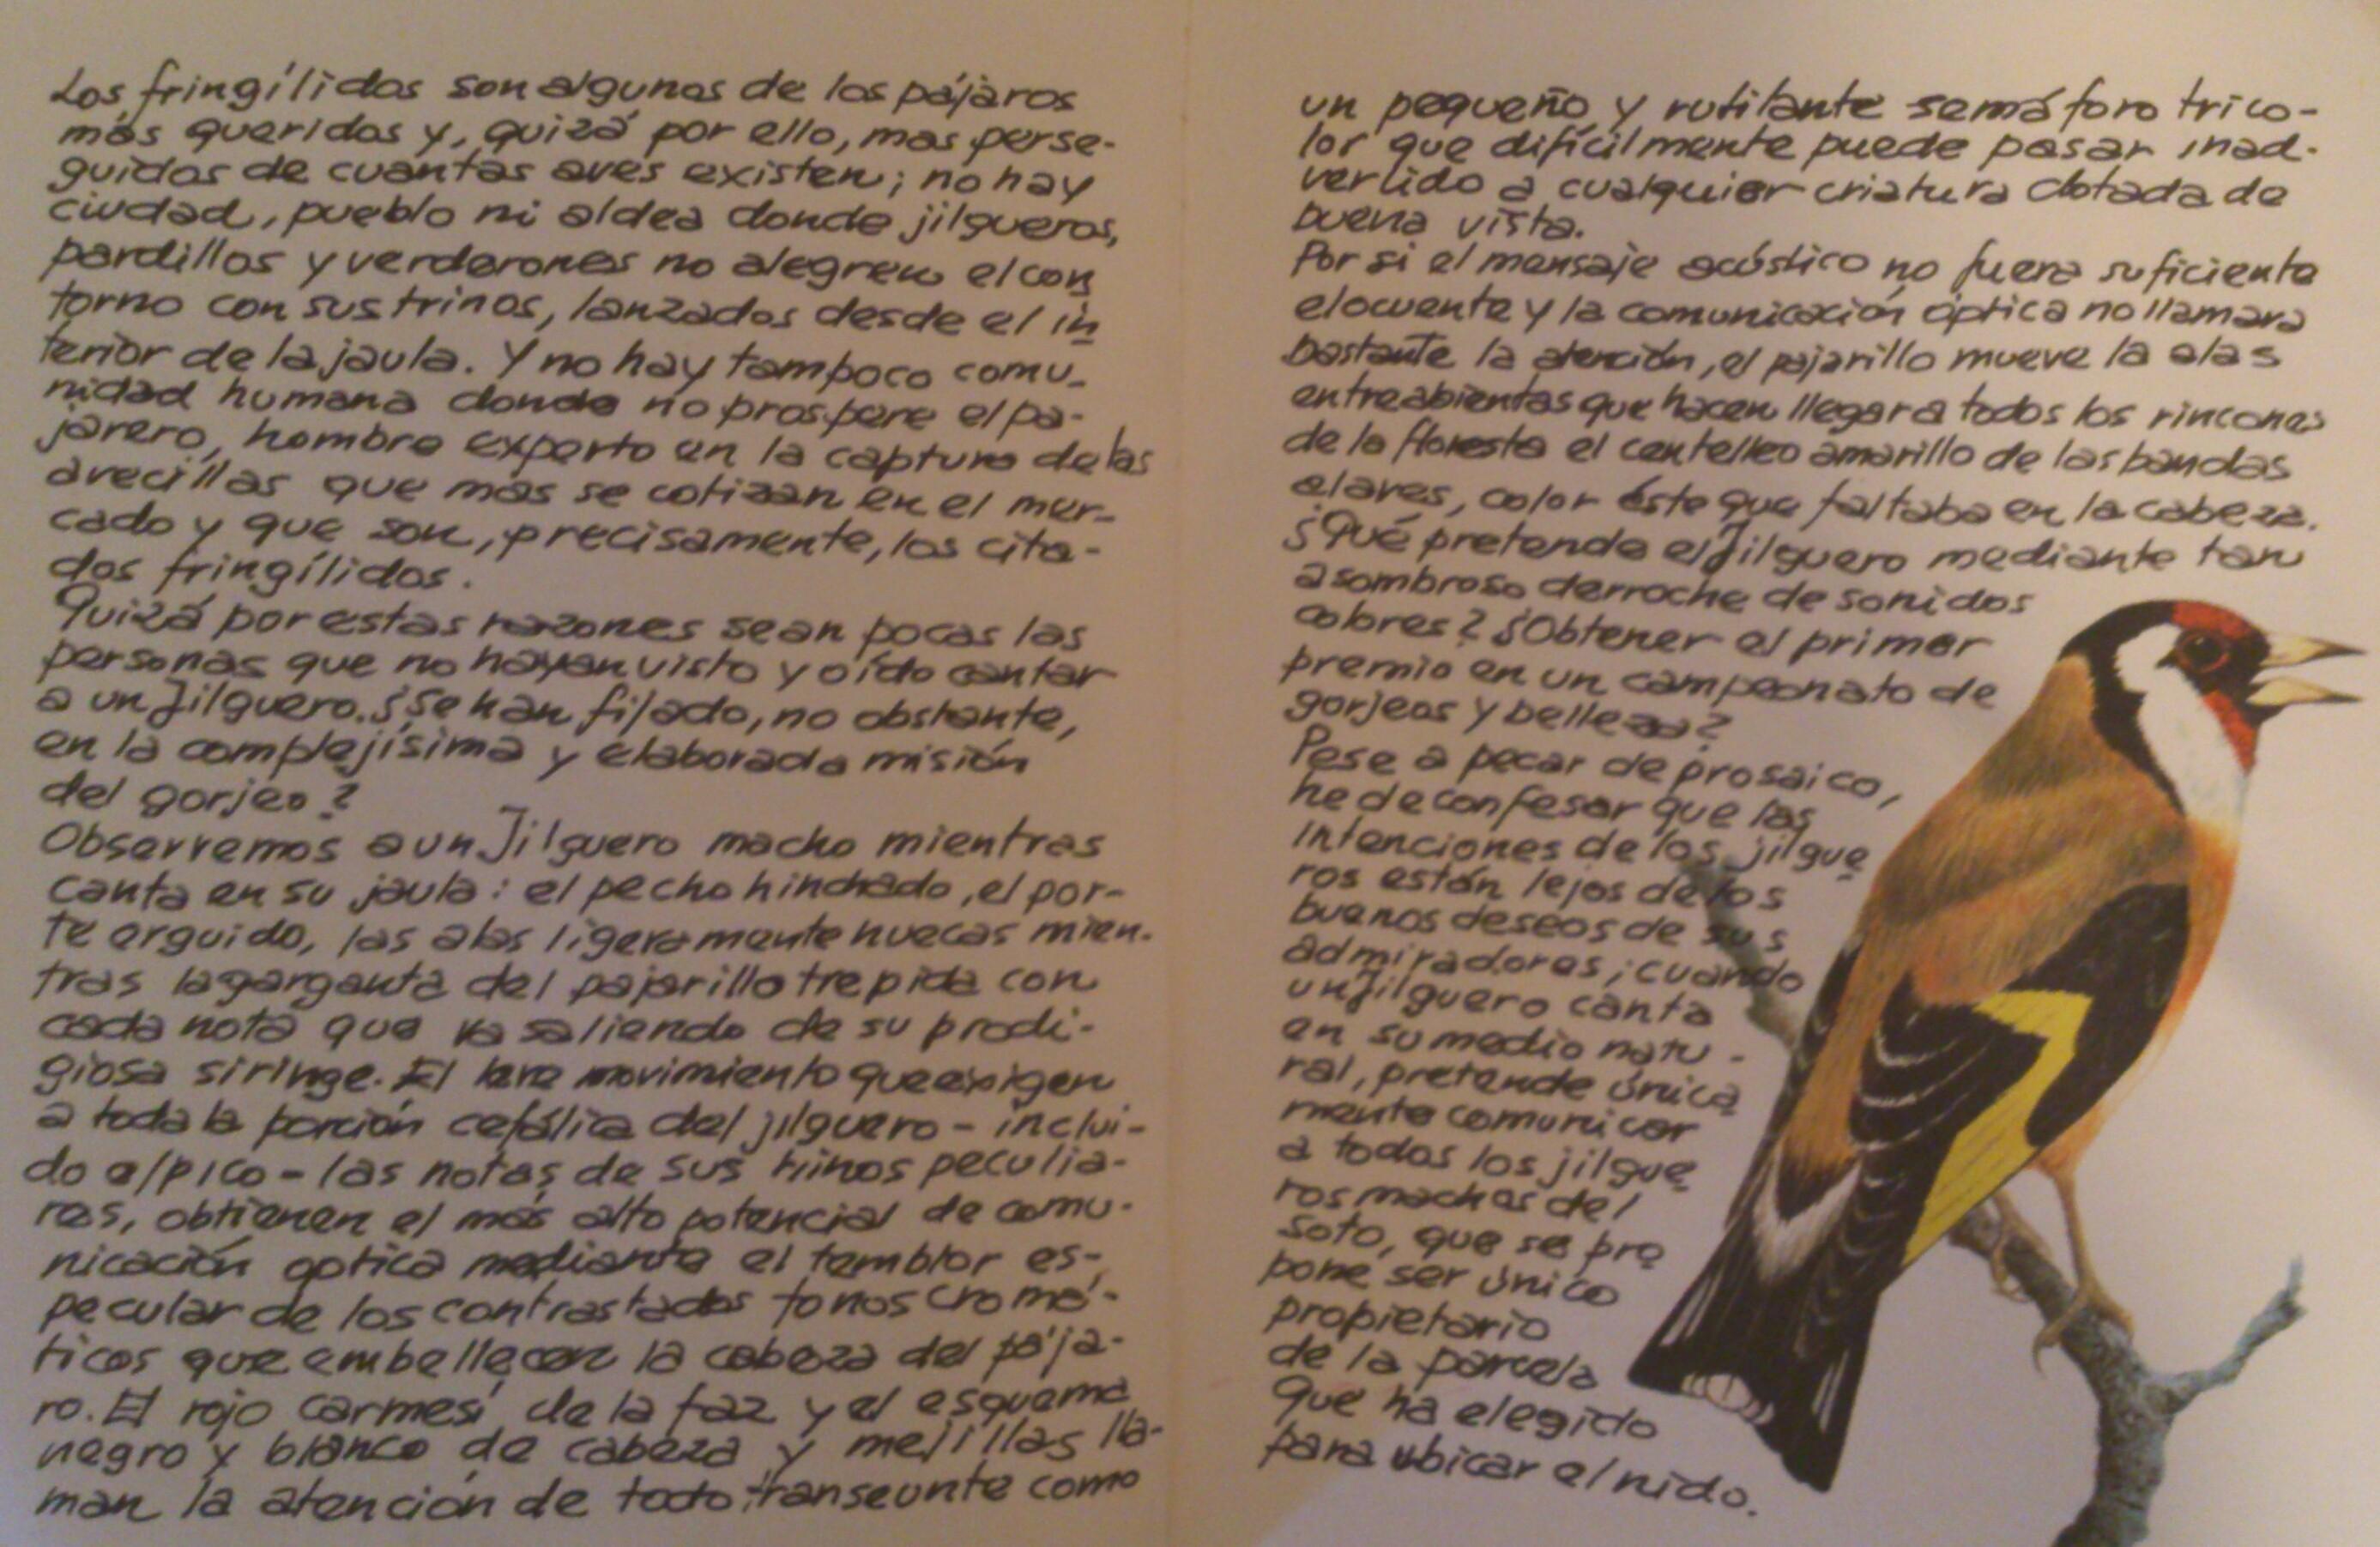 Los fringílidos son algunos de los pájaros
más queridos y, quizá por ello, mas perse-
guidos de cuantas aves existen; no hay
ciudad, pueblo ni aldea donde jilgueros,
pardillos y verderones no alegren el con
torno con sus trinos, lanzados desde el in
terior de la jaula. Y no hay tampoco comu-
nidad humana donde no prospere el pa-
jarero, hombre experto en la captura de las
avecillas que más se cotizan en el mer-
cado y que son, precisamente, los cita-
dos fringílidos.
Quizá por estas razones sean pocas las
personas que no hayan visto y oído cantar
a un Jilguero. ¿Se han fijado, no obstante,
en la complejísima y elaborada misión
del gorjeo?
Observemos a un Jilguero macho mientras
canta en su jaula: el pecho hinchado, el por-
te erguido, las alas ligeramente huecas mien-
tras la garganta del pajarillo trepida con
cada nota que va saliendo de su prodi-
giosa siringe. El leve movimiento que exigen
a toda la porción cefálica del jilguero - inclui-
do el pico - las notas de sus trinos peculia-
res, obtienen el más alto potencial de comu-
nicación optica mediante el temblor es-
pecular de los contrastados tonos cromá-
ticos que embellecen la cabeza del pája-
ro. El rojo carmesí de la faz y el esquema
negro y blanco de cabeza y mejillas lla-
man la atención de todo transeunte como
un pequeño y rutilante semáforo trico-
lor que difícilmente puede pasar inad-
vertido a cualquier criatura dotada de
buena vista.
Por si el mensaje acústico no fuera suficiente
elocuente y la comunicación óptica no llamara
bastante la atención, el pajarillo mueve la alas
entreabiertas que hacen llegar a todos los rincones
de la floresta el centelleo amarillo de las bandas
alares, color éste que faltaba en la cabeza.
¿Qué pretende el Jilguero mediante tan
asombroso derroche de sonidos
colores? ¿Obtener el primer
premio en un campeonato de
gorjeos y belleza?
Pese a pecar de prosaico,
he de confesar que las
intenciones de los jilgue
ros están lejos de los
buenos deseos de sus
admiradores; cuando
un Jilguero canta
en su medio natu-
ral, pretende única
mente comunicar
a todos los jilgue
ros machos del
soto, que se pro
pone ser único
propietario
de la parcela
Que ha elegido
para ubicar el nido.